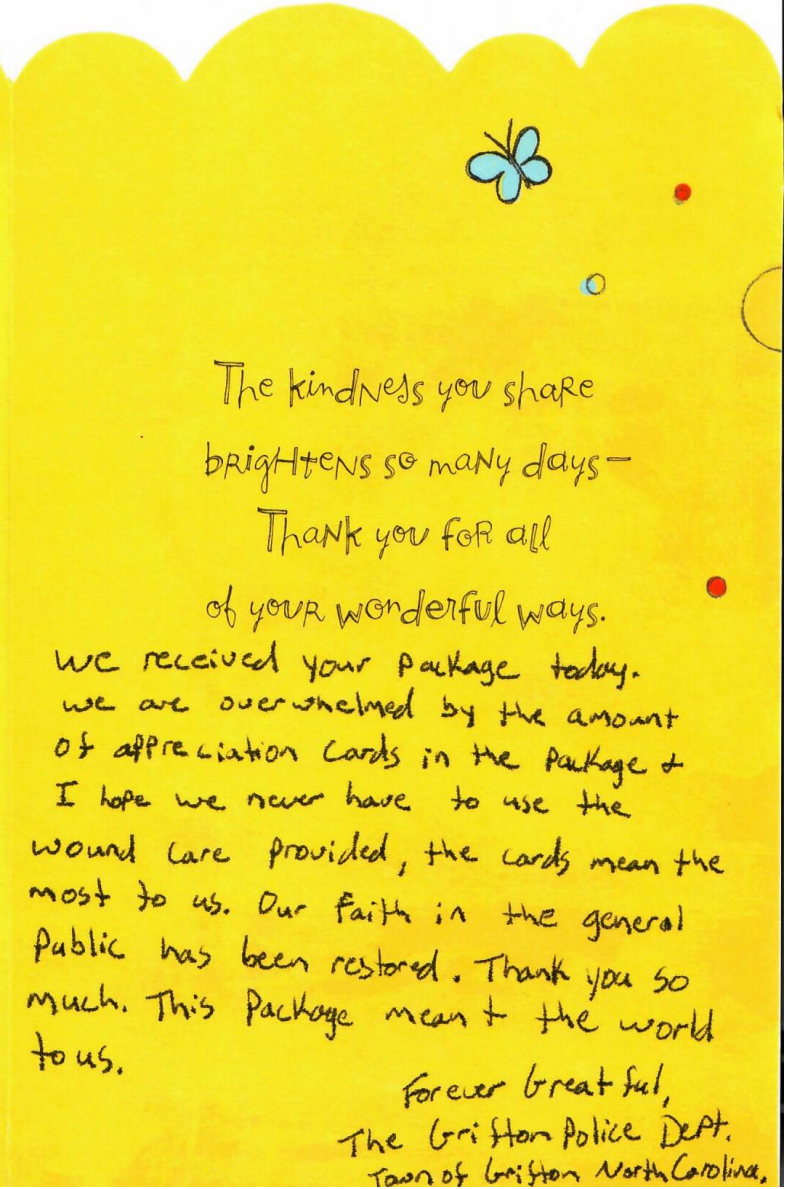 The kindness you share
brightens so many days—
Thank you for all
of your wonderful ways.
We received your package today.
we are overwhelmed by the amount
of appreciation cards in the package &
I hope we never have to use the
wound care provided, the cards mean the
most to us. Our faith in the general
Public has been restored. Thank you so
much. This Package meant the world
to us.
Forever Greatful,
The Grifton Police Dept.
Town of Grifton North Carolina.